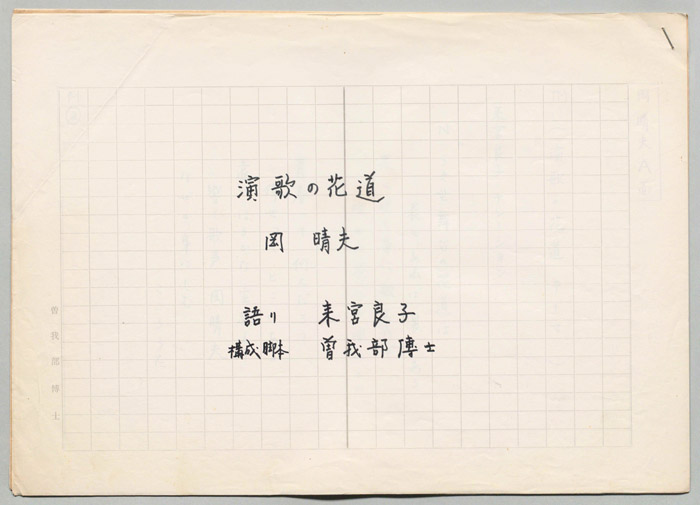 演歌の花道
岡 晴夫
語り 来宮良子
構成脚本 曽我部博士
曽我部博士